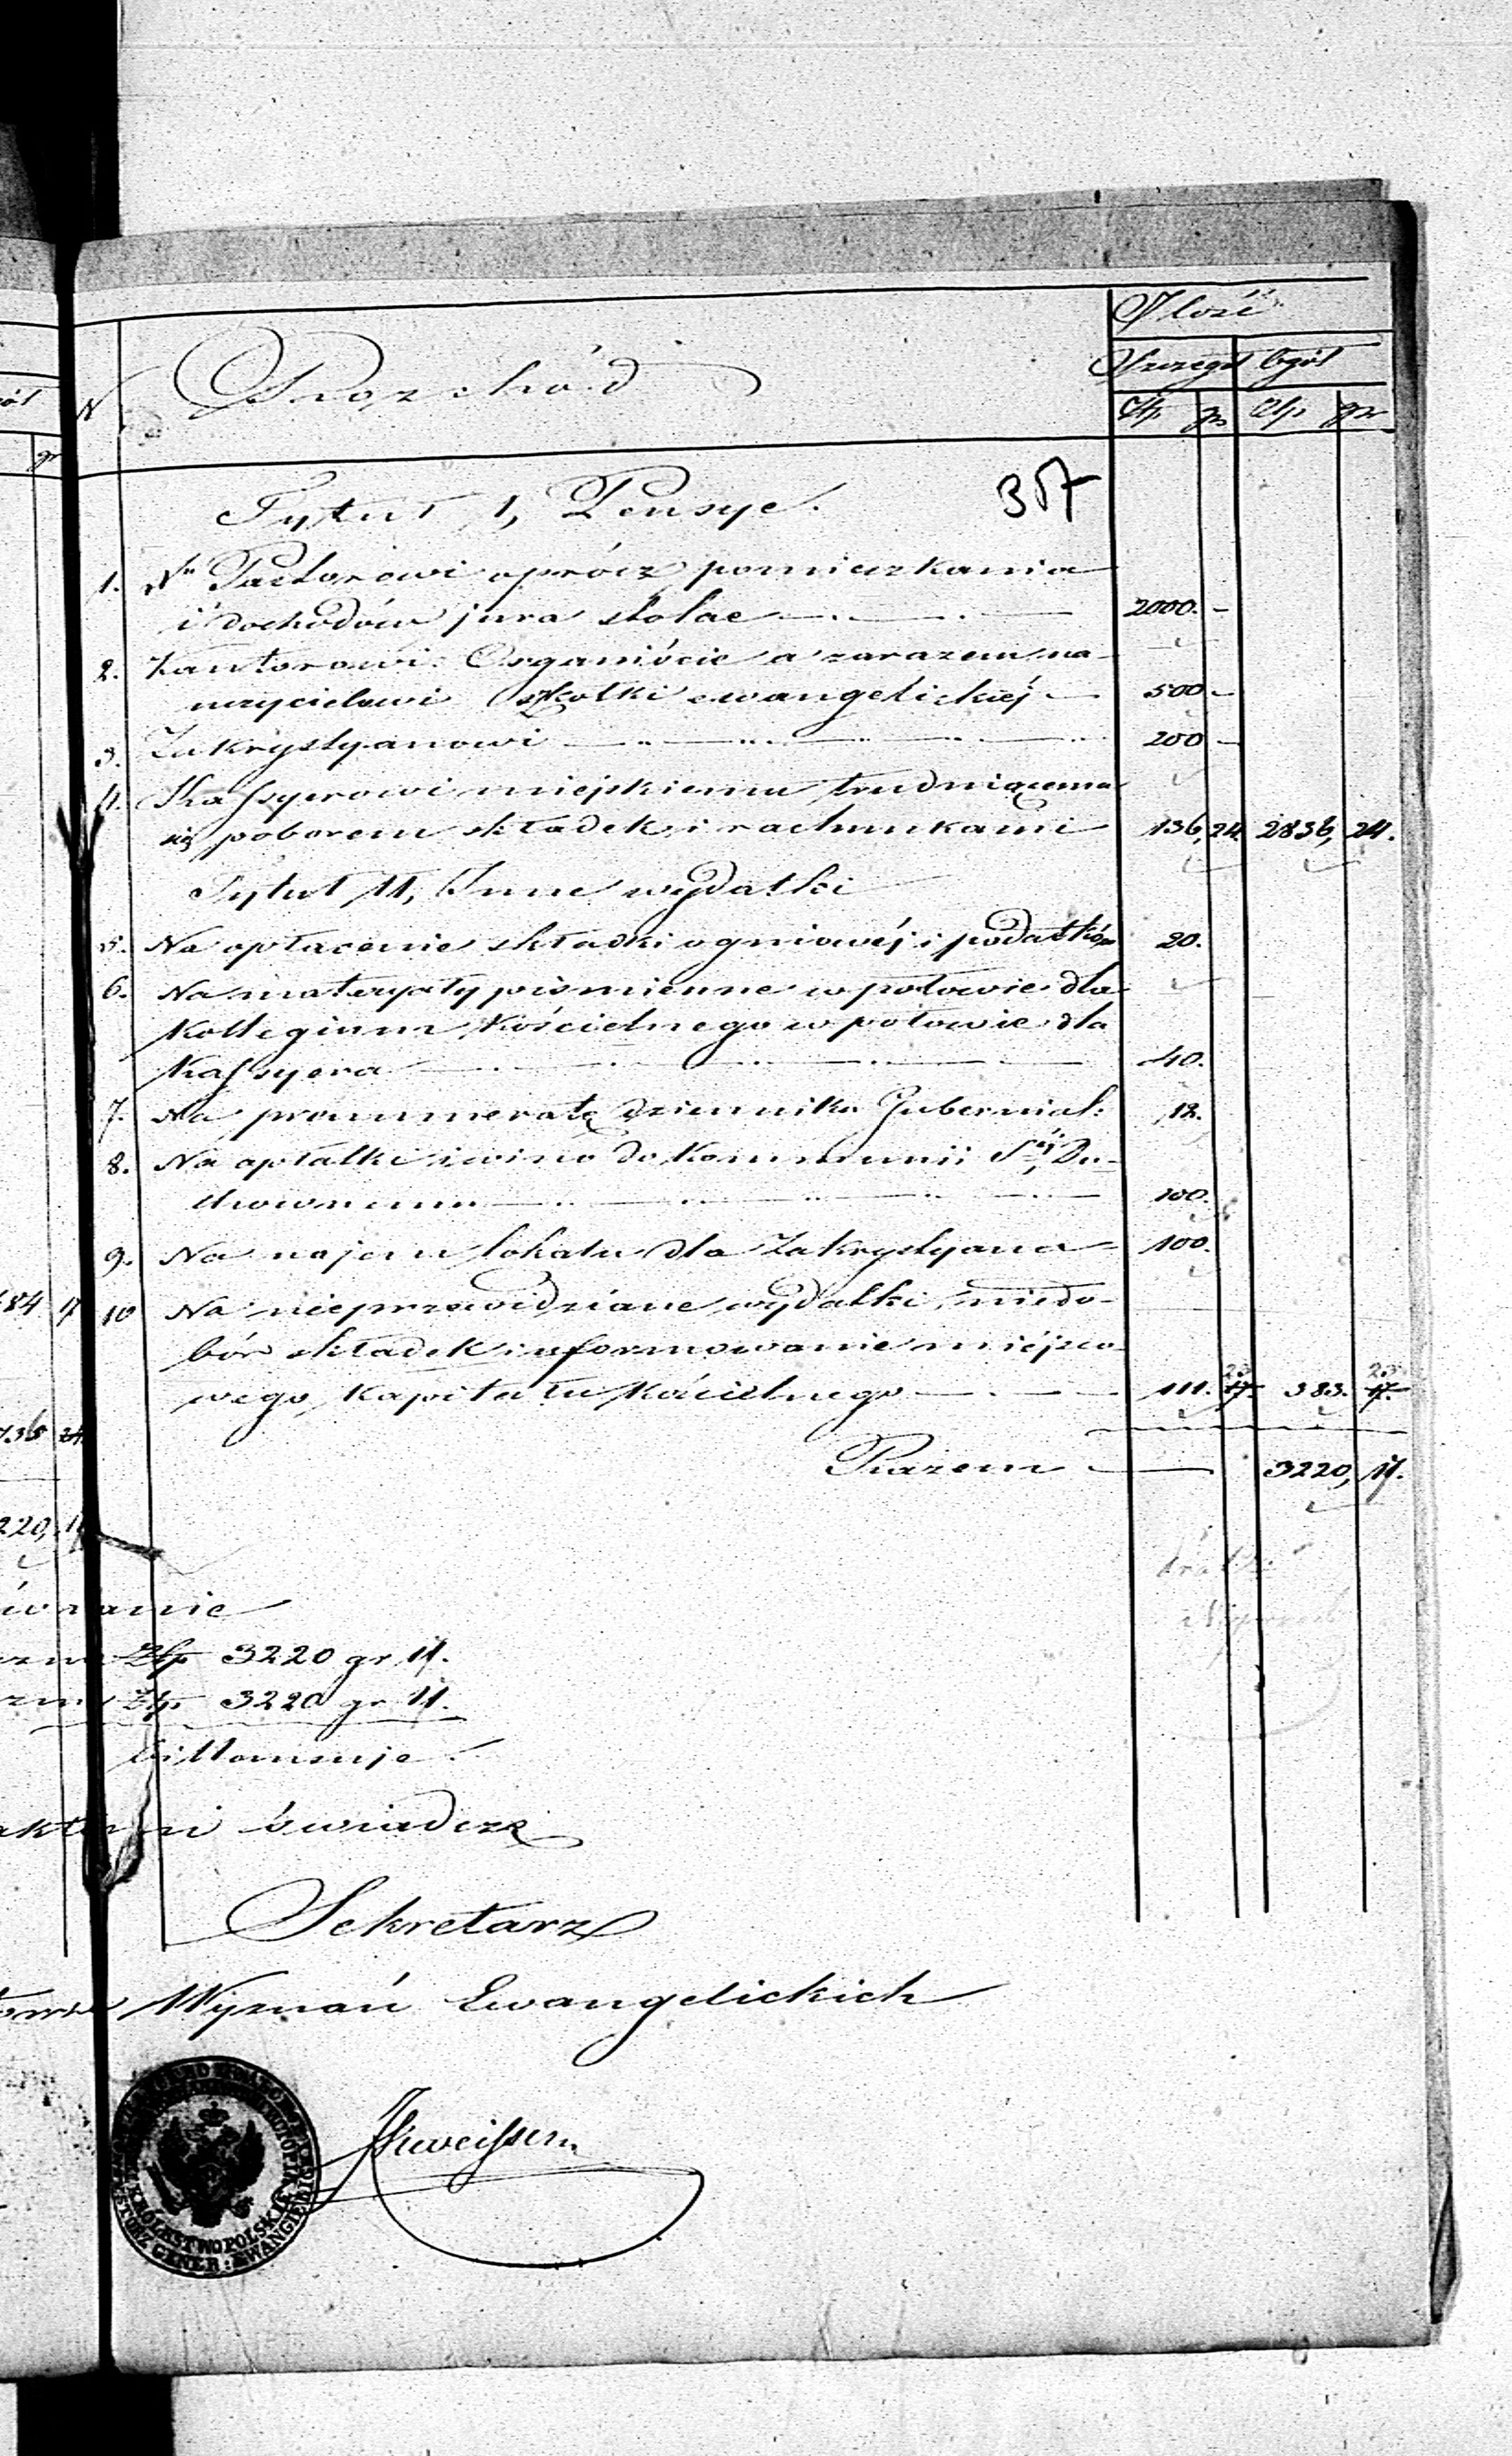 Ilość
Szczegół Ogół
N Rozchód Złp gr Złp gr
357
Tytuł 1, Pensye.
1. Pastorowi oprócz pomieszkania
i dochodów jura stolae 2000. –
2. Kantorowi Organiście a zarazem na-
uczycielowi szkółki ewangelickiéj 500 –
3. Zakrystyanowi 200 –
4. Kassyerowi miejskiemu trudniącemu
się poborem składek i rachunkami 136, 24. 2836, 24.
Tytuł 11, Inne wydatki
5. Na opłacenie składki ogniowéj i podatków 20.
6. Na materyały piśmienne w połowie dla
Kollegium Kościelnego w połowie dla
Kassyera 40.
7. Na prenumeratę dziennika Gubernial: 12.
8. Na opłatki i wino do Kommunii Sej Du-
chownemu 100.
9. Na najem lokalu dla Zakrystyana 100.
10 Na nieprzewidziane wydatki, niedo-
bór składek i uformowanie miéjsco-
wego Kapitału Kościelnego 111. 17. 383. 17.
23 23
Razem 3220, 17.
84 17
736 24
220, 1
wnanie
Złp 3220 gr 17.
Złp 3220 gr 17.
świadczę
Sekretarz
Wyznań Ewangelickich
KRÓLESTWO POLSKIE
GENER: EWANGIELIC